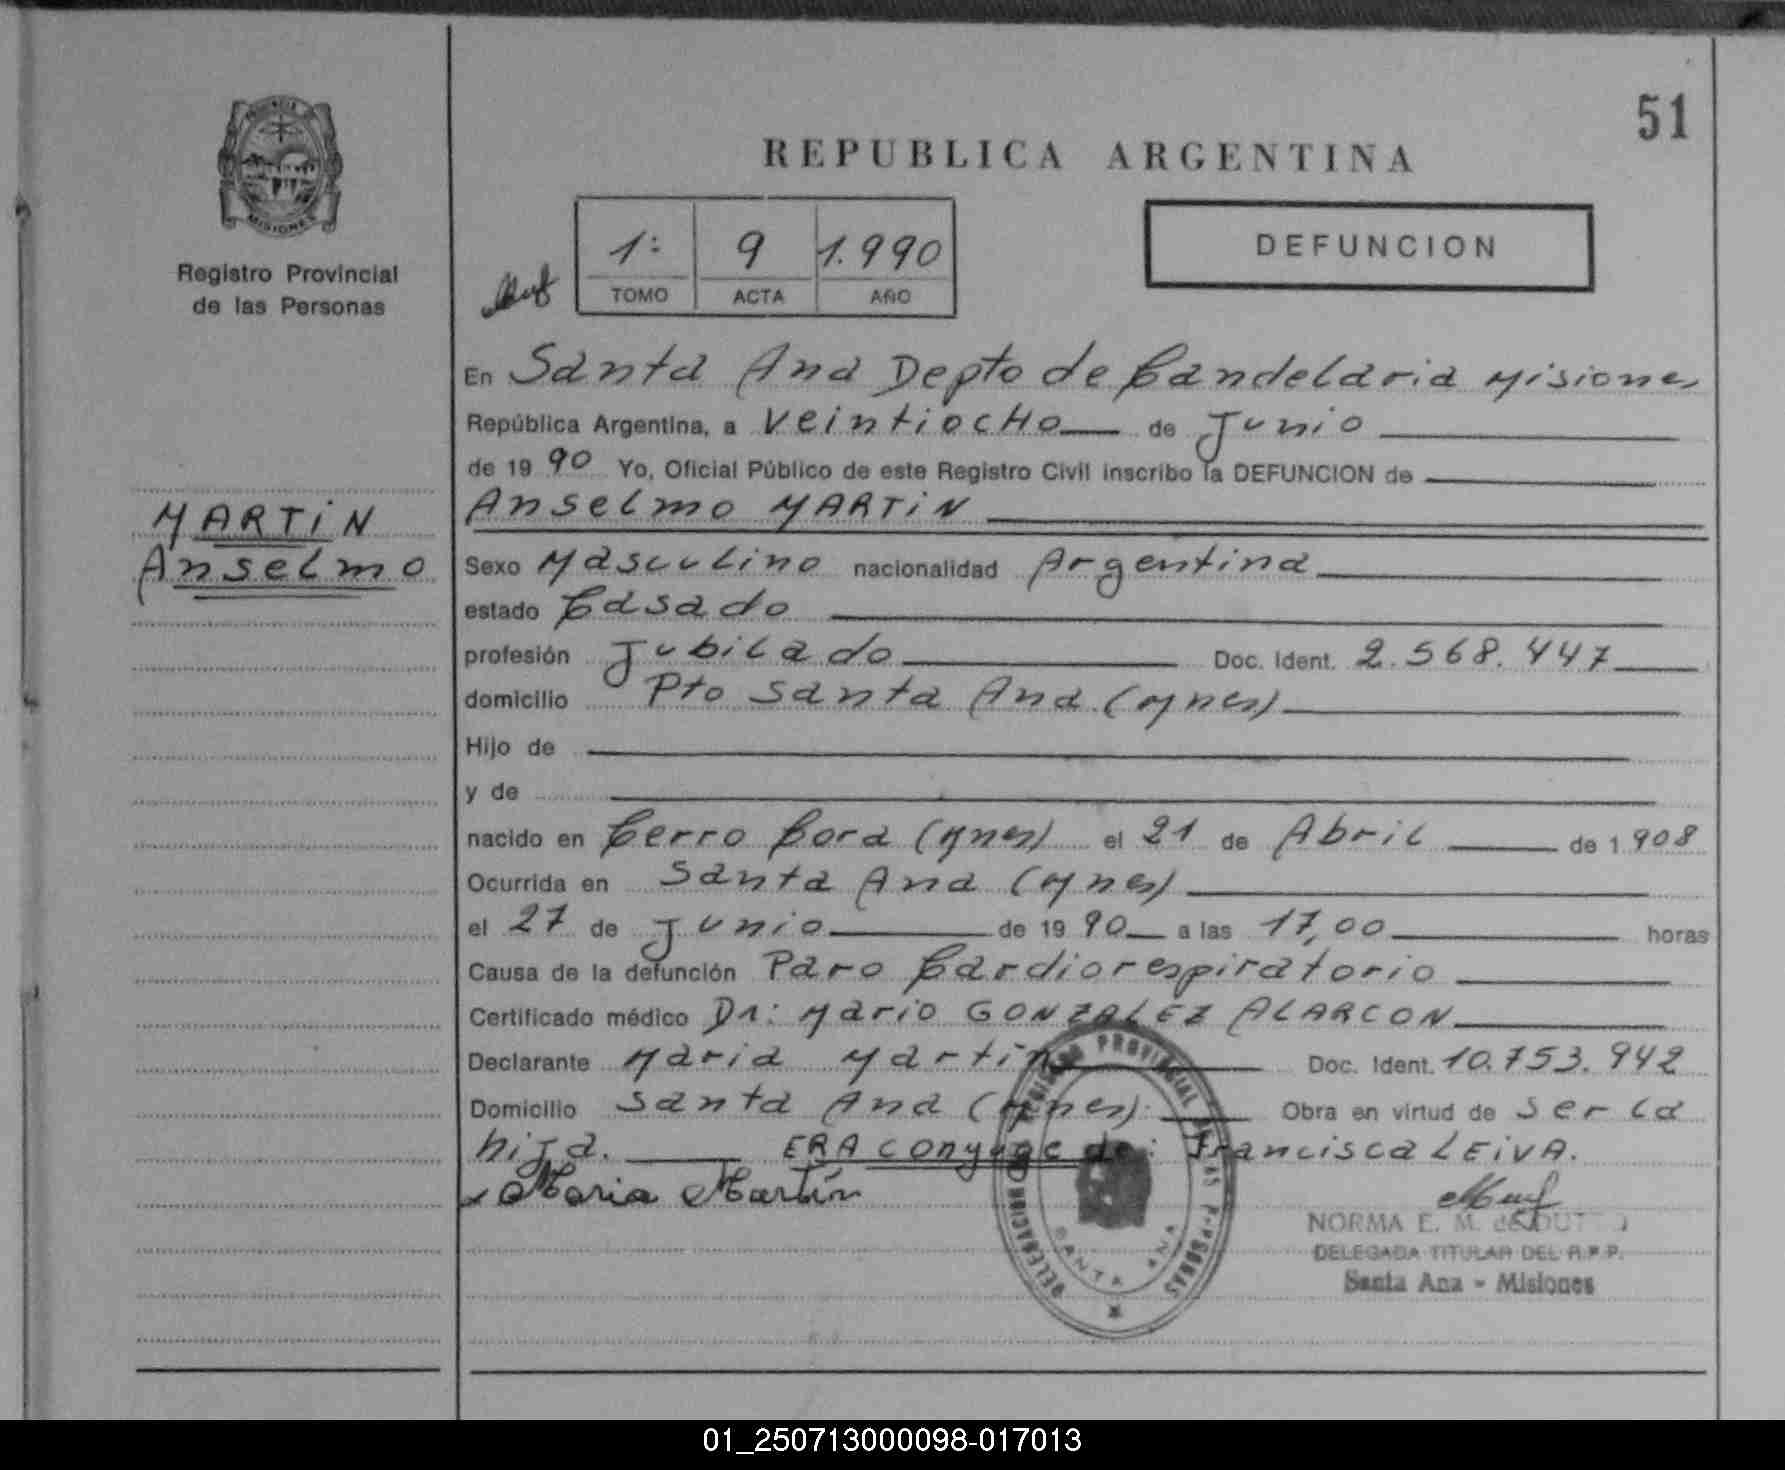 51
REPUBLICA ARGENTINA
PROVINCIA
MISIONES
Registro Provincial
de las Personas
1: 9 1.990
TOMO ACTA AÑO
DEFUNCION
En Santa Ana Depto de Candelaria Misiones
República Argentina, a veintiocho de Junio
de 19 90 Yo, Oficial Público de este Registro Civil inscribo la DEFUNCION de
MARTIN
Anselmo
Anselmo MARTIN
Sexo Masculino nacionalidad Argentina
estado Casado
profesión Jubilado Doc. Ident. 2.568.447
domicilio Pto Santa Ana (Mnes)
Hijo de
y de
nacido en Cerro Cora (Mnes) el 21 de Abril de 1 908
Ocurrida en Santa Ana (Mnes)
el 27 de Junio de 19 90 a las 17,00 horas
Causa de la defunción Paro Cardiorespiratorio
Certificado médico Dr: Mario GONZALEZ ALARCON
Declarante Maria Martin Doc. Ident. 10.753.942
Domicilio Santa Ana (Mnes): Obra en virtud de ser la
hija. ERA conyuge de: Francisca LEIVA.
Maria Martín
REGISTRO PROVINCIAL DE LAS PERSONAS
DELEGACION
SANTA ANA
NORMA E. M. de
DELEGADA TITULAR DEL R.P.P.
Santa Ana - Misiones
01_250713000098-017013